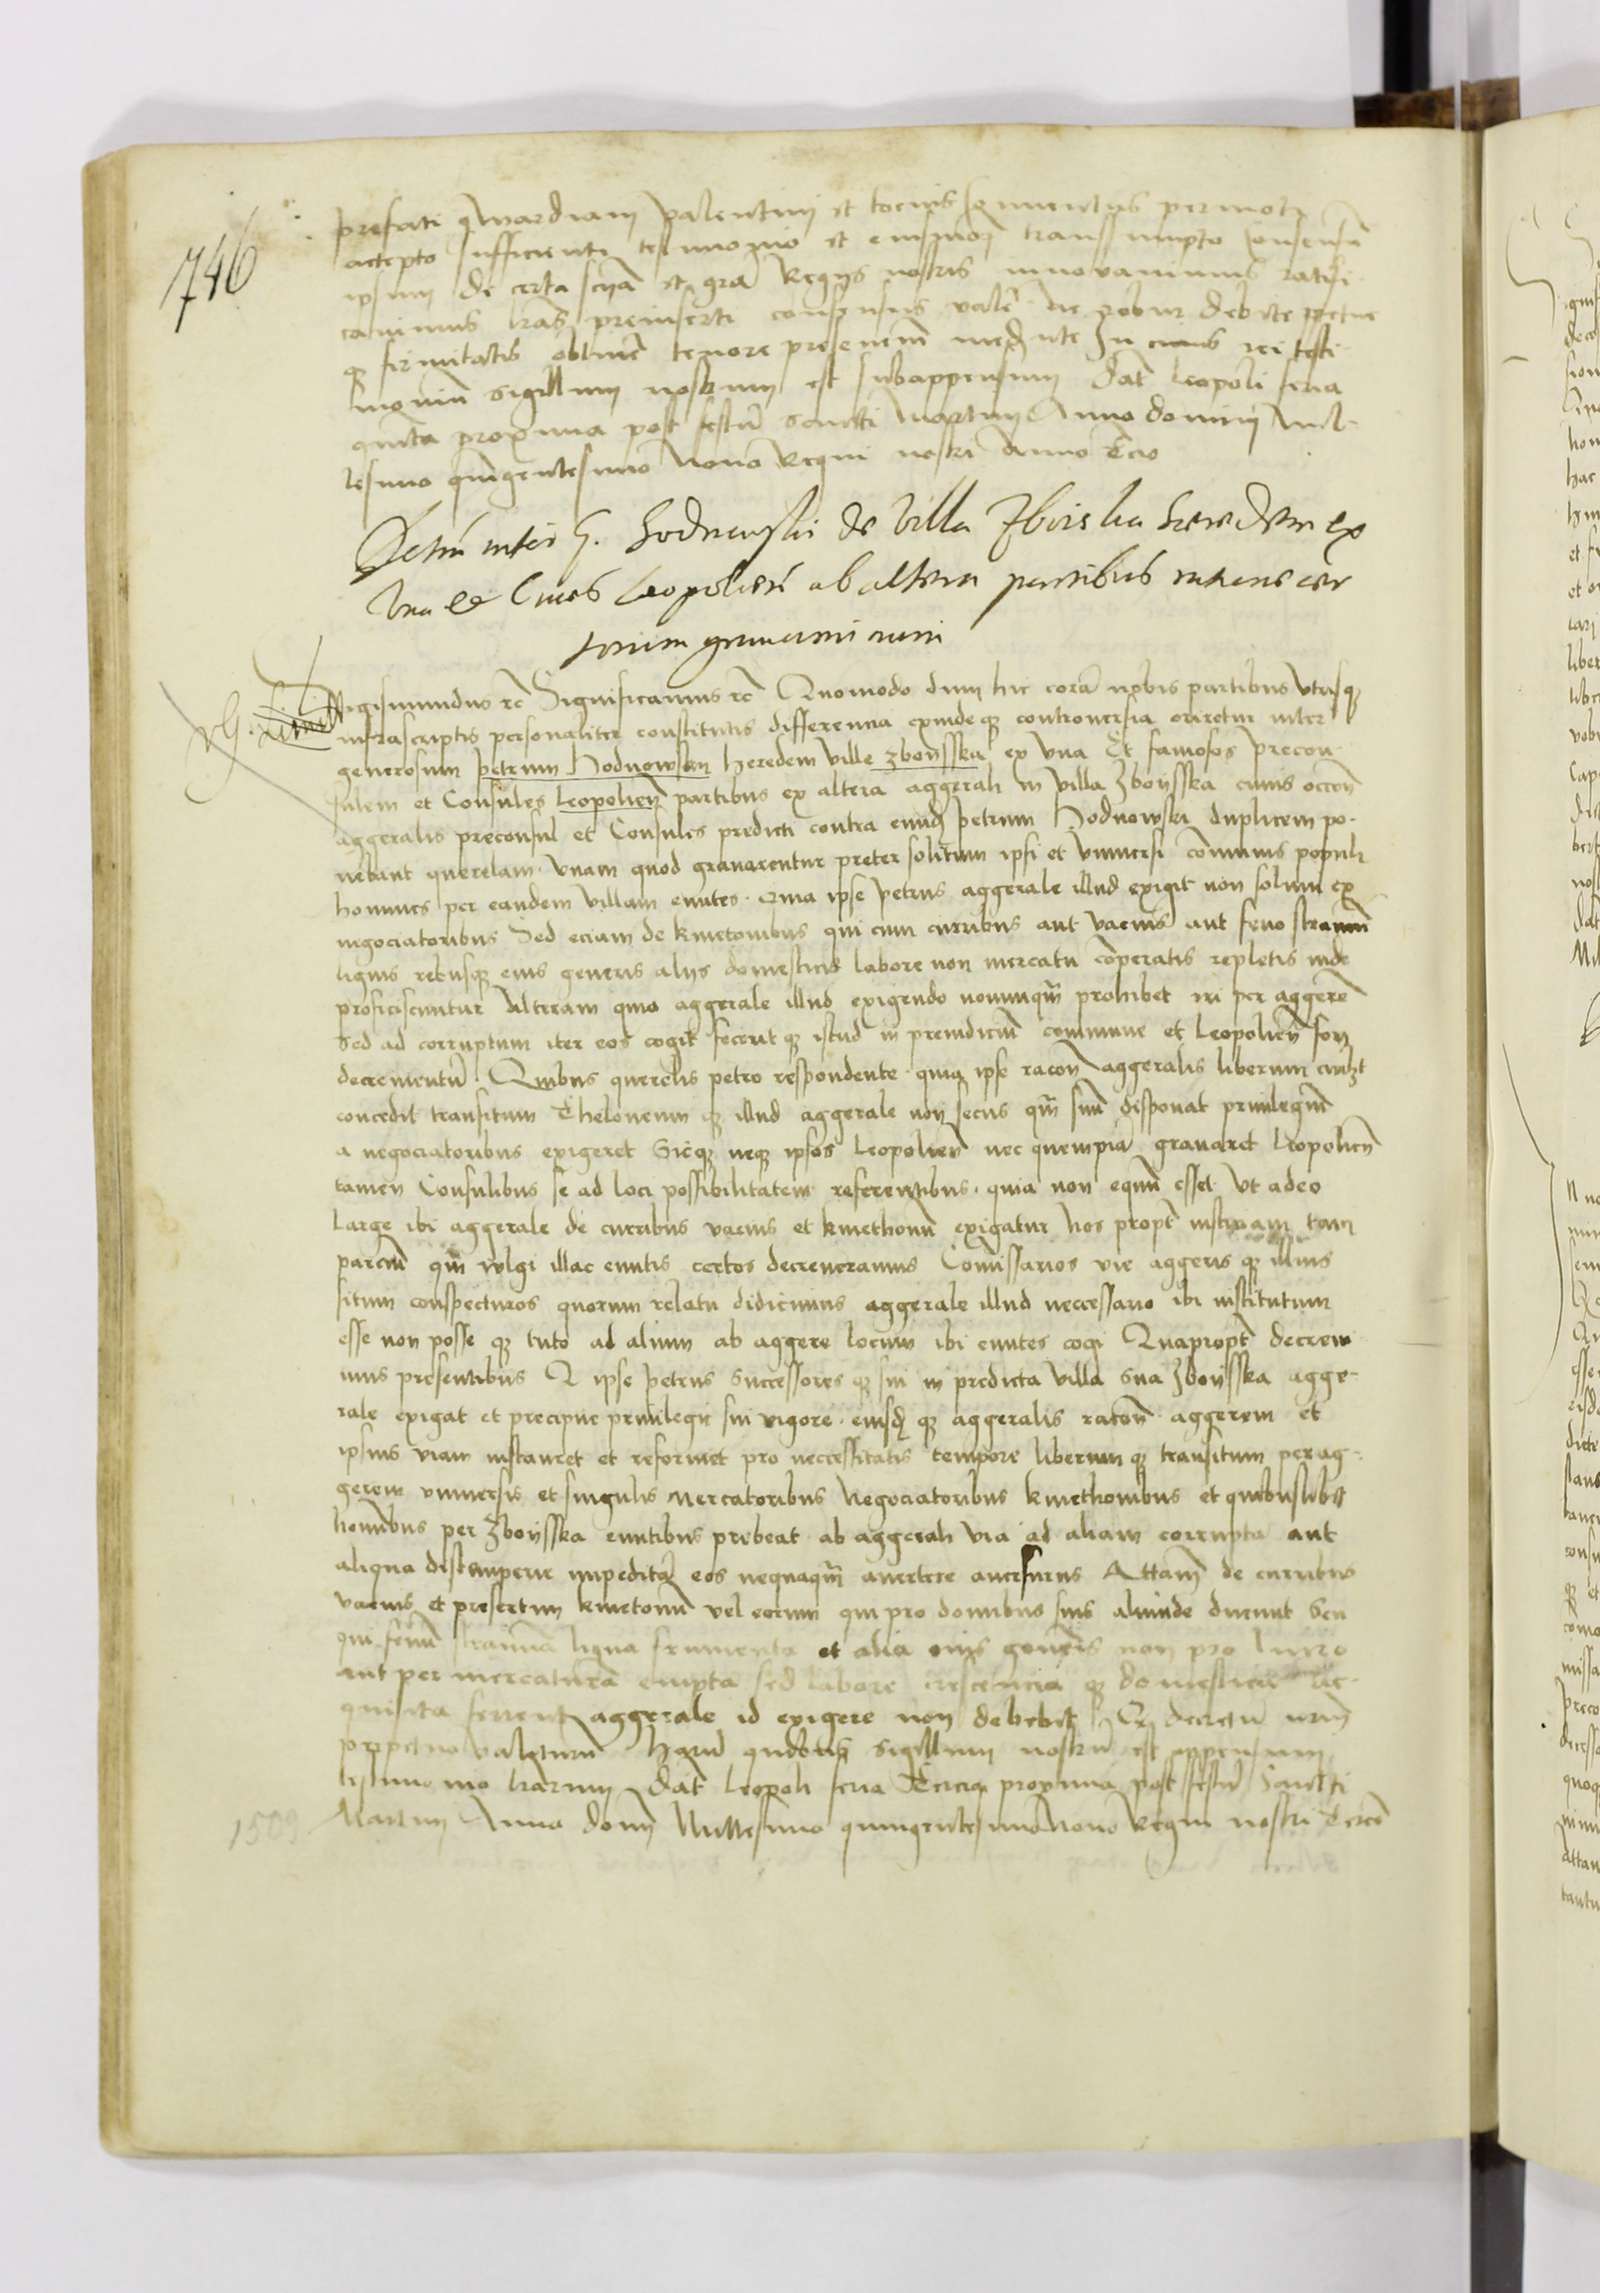 746
prefati qwardiani Valentini et tocius Conventus permoti
accepto sufficienti testimonio et eiusmodi transsumpto consensu
ipsum de certa scīa et grā Regijs nostris innovavimus ratifi
cavimus lrās preinserti consensus valē ac robur debite perpetue
qȝ firmitatis obtinē tenore presencium mediante In cuius rei testi
monium sigillum nostrum est subappensum Dat Leopoli feria
quinta proxima post festū Sancti Martini Anno domini Mil
lesimo quingentesimo Nono Regni nostri Anno Tercio
Decretū inter G. Hodnowski de Villa Zboiska heredem ex
una et Cives Leopolien̄ ab altera partibus racione
gravaminum
Sigismundus rc̄ Significamus rc̄ Quomodo dum hic corā nobis partibus utrisqȝ
infrascriptis personaliter constitutis differencia exindeqȝ controversia oriretur inter
generosum petrum Hodnowski heredem ville zboysska ex una Et famosos precon
sulem et Consules Leopolien̄ partibus ex altera aggerali in villa Zboysska cuius occōn̄
aggeralis preconsul et Consules predicti contra eundē petrum Hodnowski duplicem po
nebant querelam. unam quod gravarentur preter solitum ipsi et universi communis populi
homines per eandem villam euntes. quia ipse Petrus aggerale illud exigit non solum ex
negociatoribus Sed eciam de kmetonibus qui cum curribus aut vacuis aut feno stramī
lignis rebusqȝ eius generis alijs domesticis labore non mercatu cōperatis repletis inde
proficiscuntur Alteram quo aggerale illud exigendo nonnunqm̄ prohibet iri per aggerē
Sed ad corruptum iter eos cogit feceritqȝ istud in preiudiciū commune et Leopolien̄ fori
decrementū Quibus querelis petro respondente. quia ipse racōn̄ aggeralis liberum cuilibet
concedit transitum Theloneum qȝ illud aggerale non secus qm̄ suū disponat privilegiū
a negociatoribus exigeret Sicqȝ neqȝ ipsos Leopolien̄ nec quempiā gravaret Leopolien̄
tamen Consulibus se ad loci possibilitatem referentibus. quia non equū esset ut adeo
large ibi aggerale de curribus vacuis et kmethonū exigatur Nos propt̄ instanciam tam
parciū qm̄ vulgi illac euntis certos decreveramus Comissarios vie aggeris qȝ illius
situm conspecturos quorum relatu didicimus aggerale illud neccessario ibi institutum
esse non posse qȝ tuto ad alium ab aggere locum ibi euntes cogi Quapropt̄ decrevi
mus presentibus Q ipse petrus Successores qȝ sui in predicta villa sua Zboysska agge
rale exigat et precipue privilegij sui vigore. eiusdē qȝ aggeralis racōn̄ aggerem et
ipsius viam instauret et reformet pro neccessitatis tempore liberum qȝ transitum per ag
gerem universis et singulis Mercatoribus Negociatoribus kmethonibus et quibuslibȝ
hominbus per Zboysska euntibus prebeat. ab aggerali via ad aliam corrupta aut
aliqua distemperie impeditā eos nequaqm̄ avertere aversurus Attamē de curribus
vacuis et presertim kmetonū vel eorum qui pro domibus suis aliunde ducunt Seu
qui fenū stramina ligna frumenta et alia eius generis non pro lucro
aut per mercaturā empta sed labore crescencia qȝ domestica ac
quisita ferrent aggerale id exigere non debebit Q decretū nrūm
perpetuo valiturū Harū quibus sigillum nostrū est appensum
testimonio lrārum Dat Leopoli feria Tercia proxima post festū Sancti
Martini Anno Domī Millesimo quingentesimo Nono Regni nostri Tercō
1509